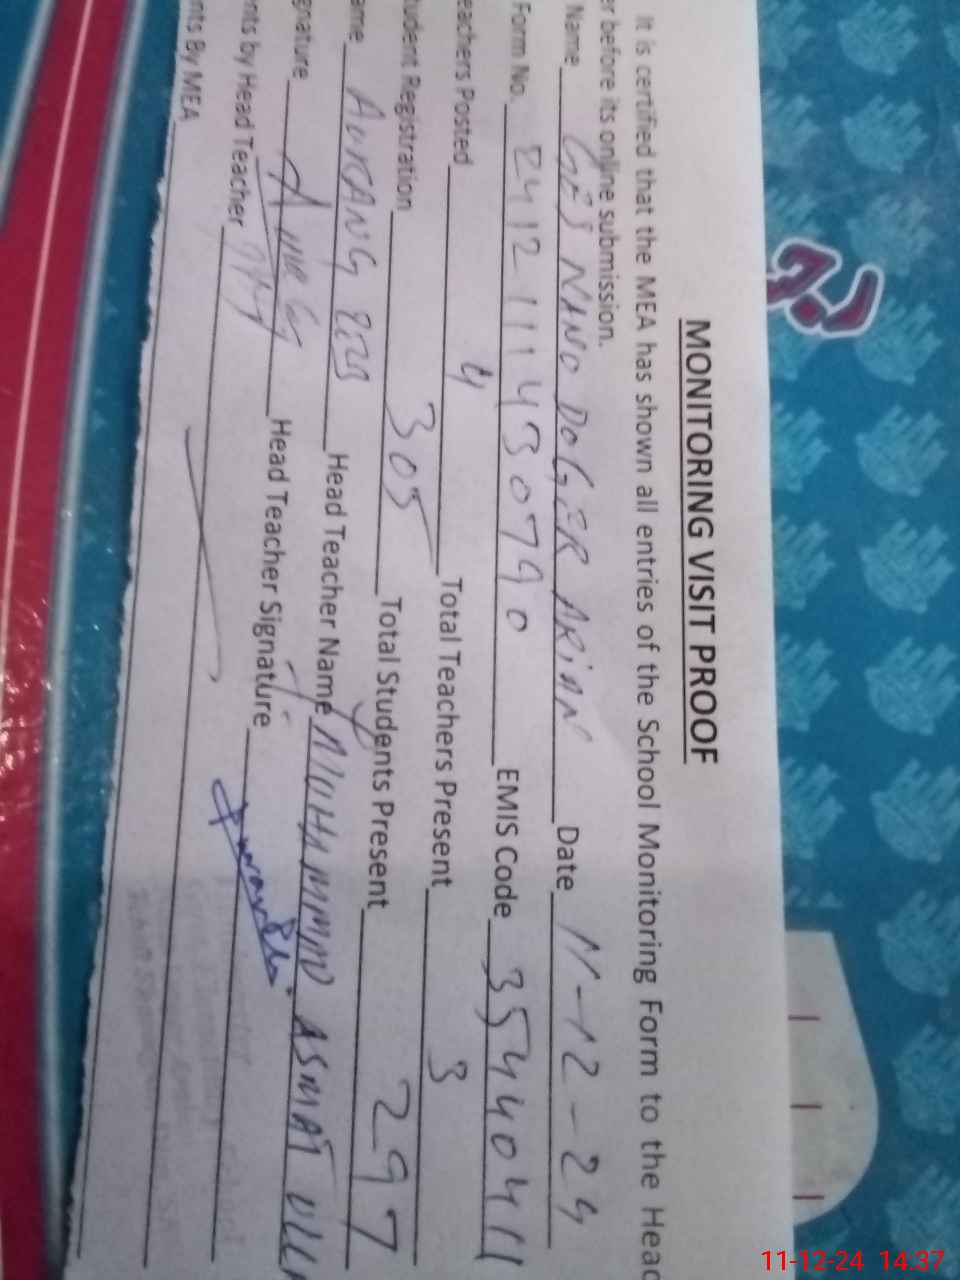 MONITORING VISIT PROOF
It is certified that the MEA has shown all entries of the School Monitoring Form to the Head
er before its online submission.
Name GES NANO DOGER ARiAN Date 11-12-24
Form No. 2412111430790 EMIS Code 35440411
eachers Posted 4 Total Teachers Present 3
tudent Registration 305 Total Students Present 297
ame AURANG ZEB Head Teacher Name MUHAMMAD ASMAT ULL
gnature Head Teacher Signature
nts by Head Teacher
nts By MEA
11-12-24 14:37